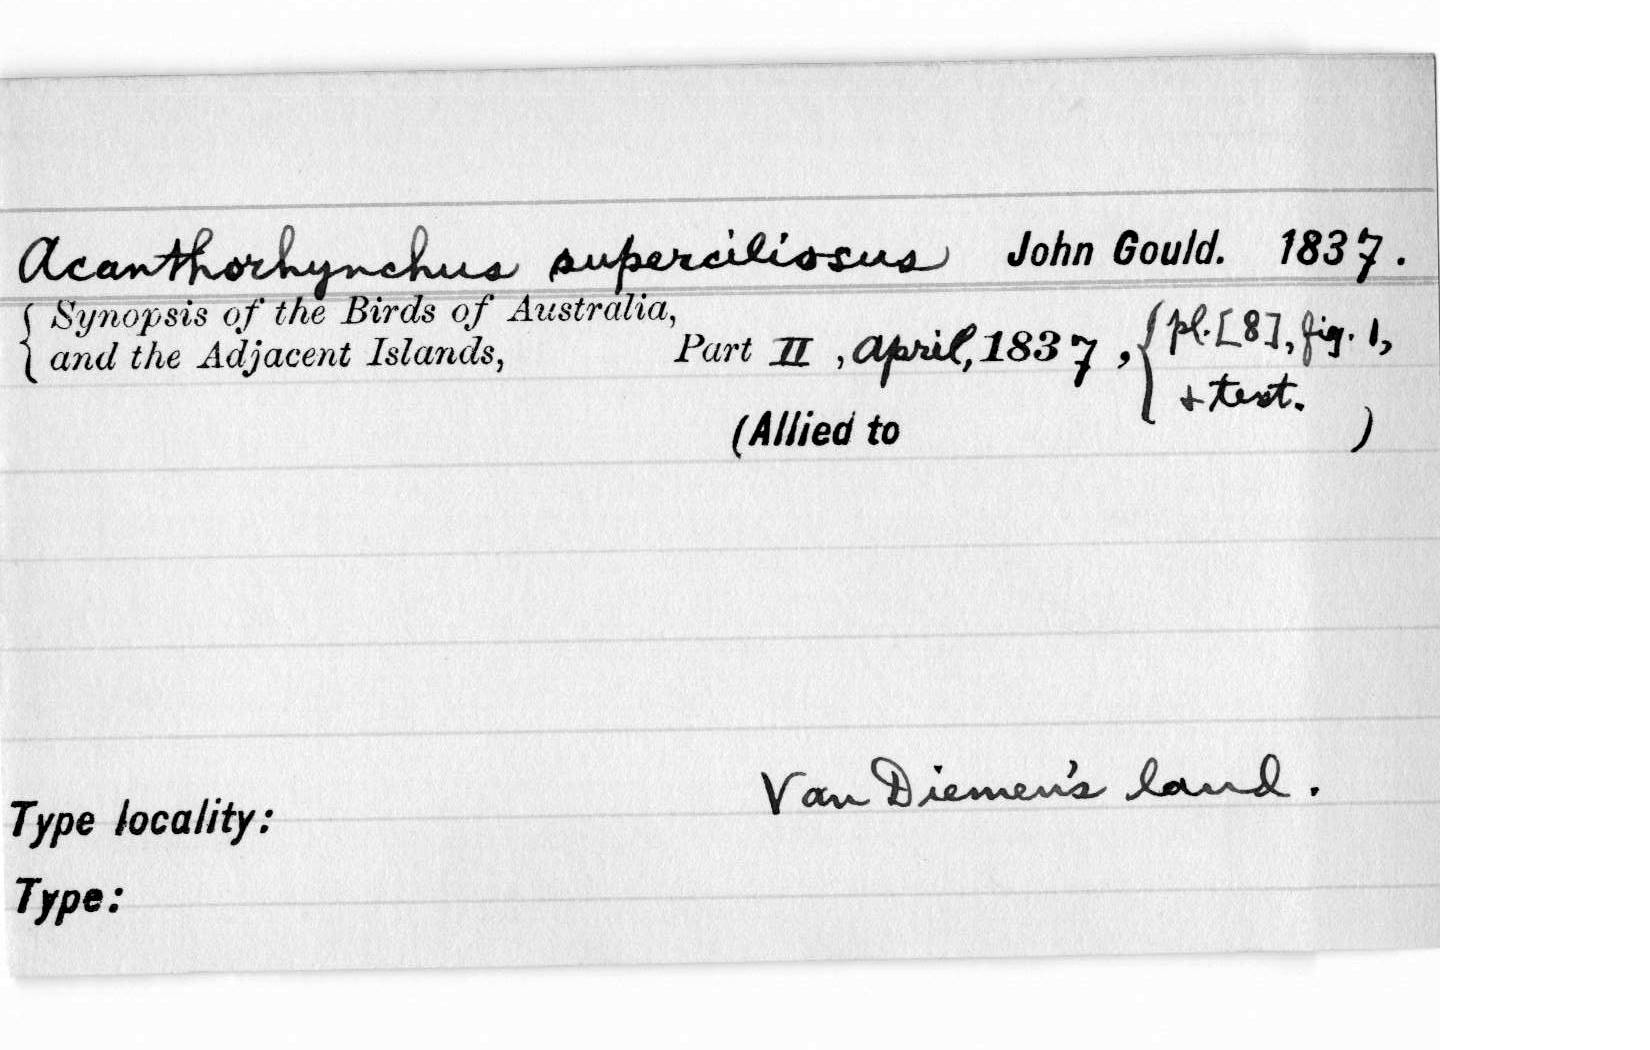 Acanthorhynchus superciliosus John Gould. 1837.
Synopsis of the Birds of Australia,
and the Adjacent Islands, Part II, April, 1837, pl. [8], fig. 1,
+ text.
(Allied to )
Van Diemen's land.
Type locality:
Type: